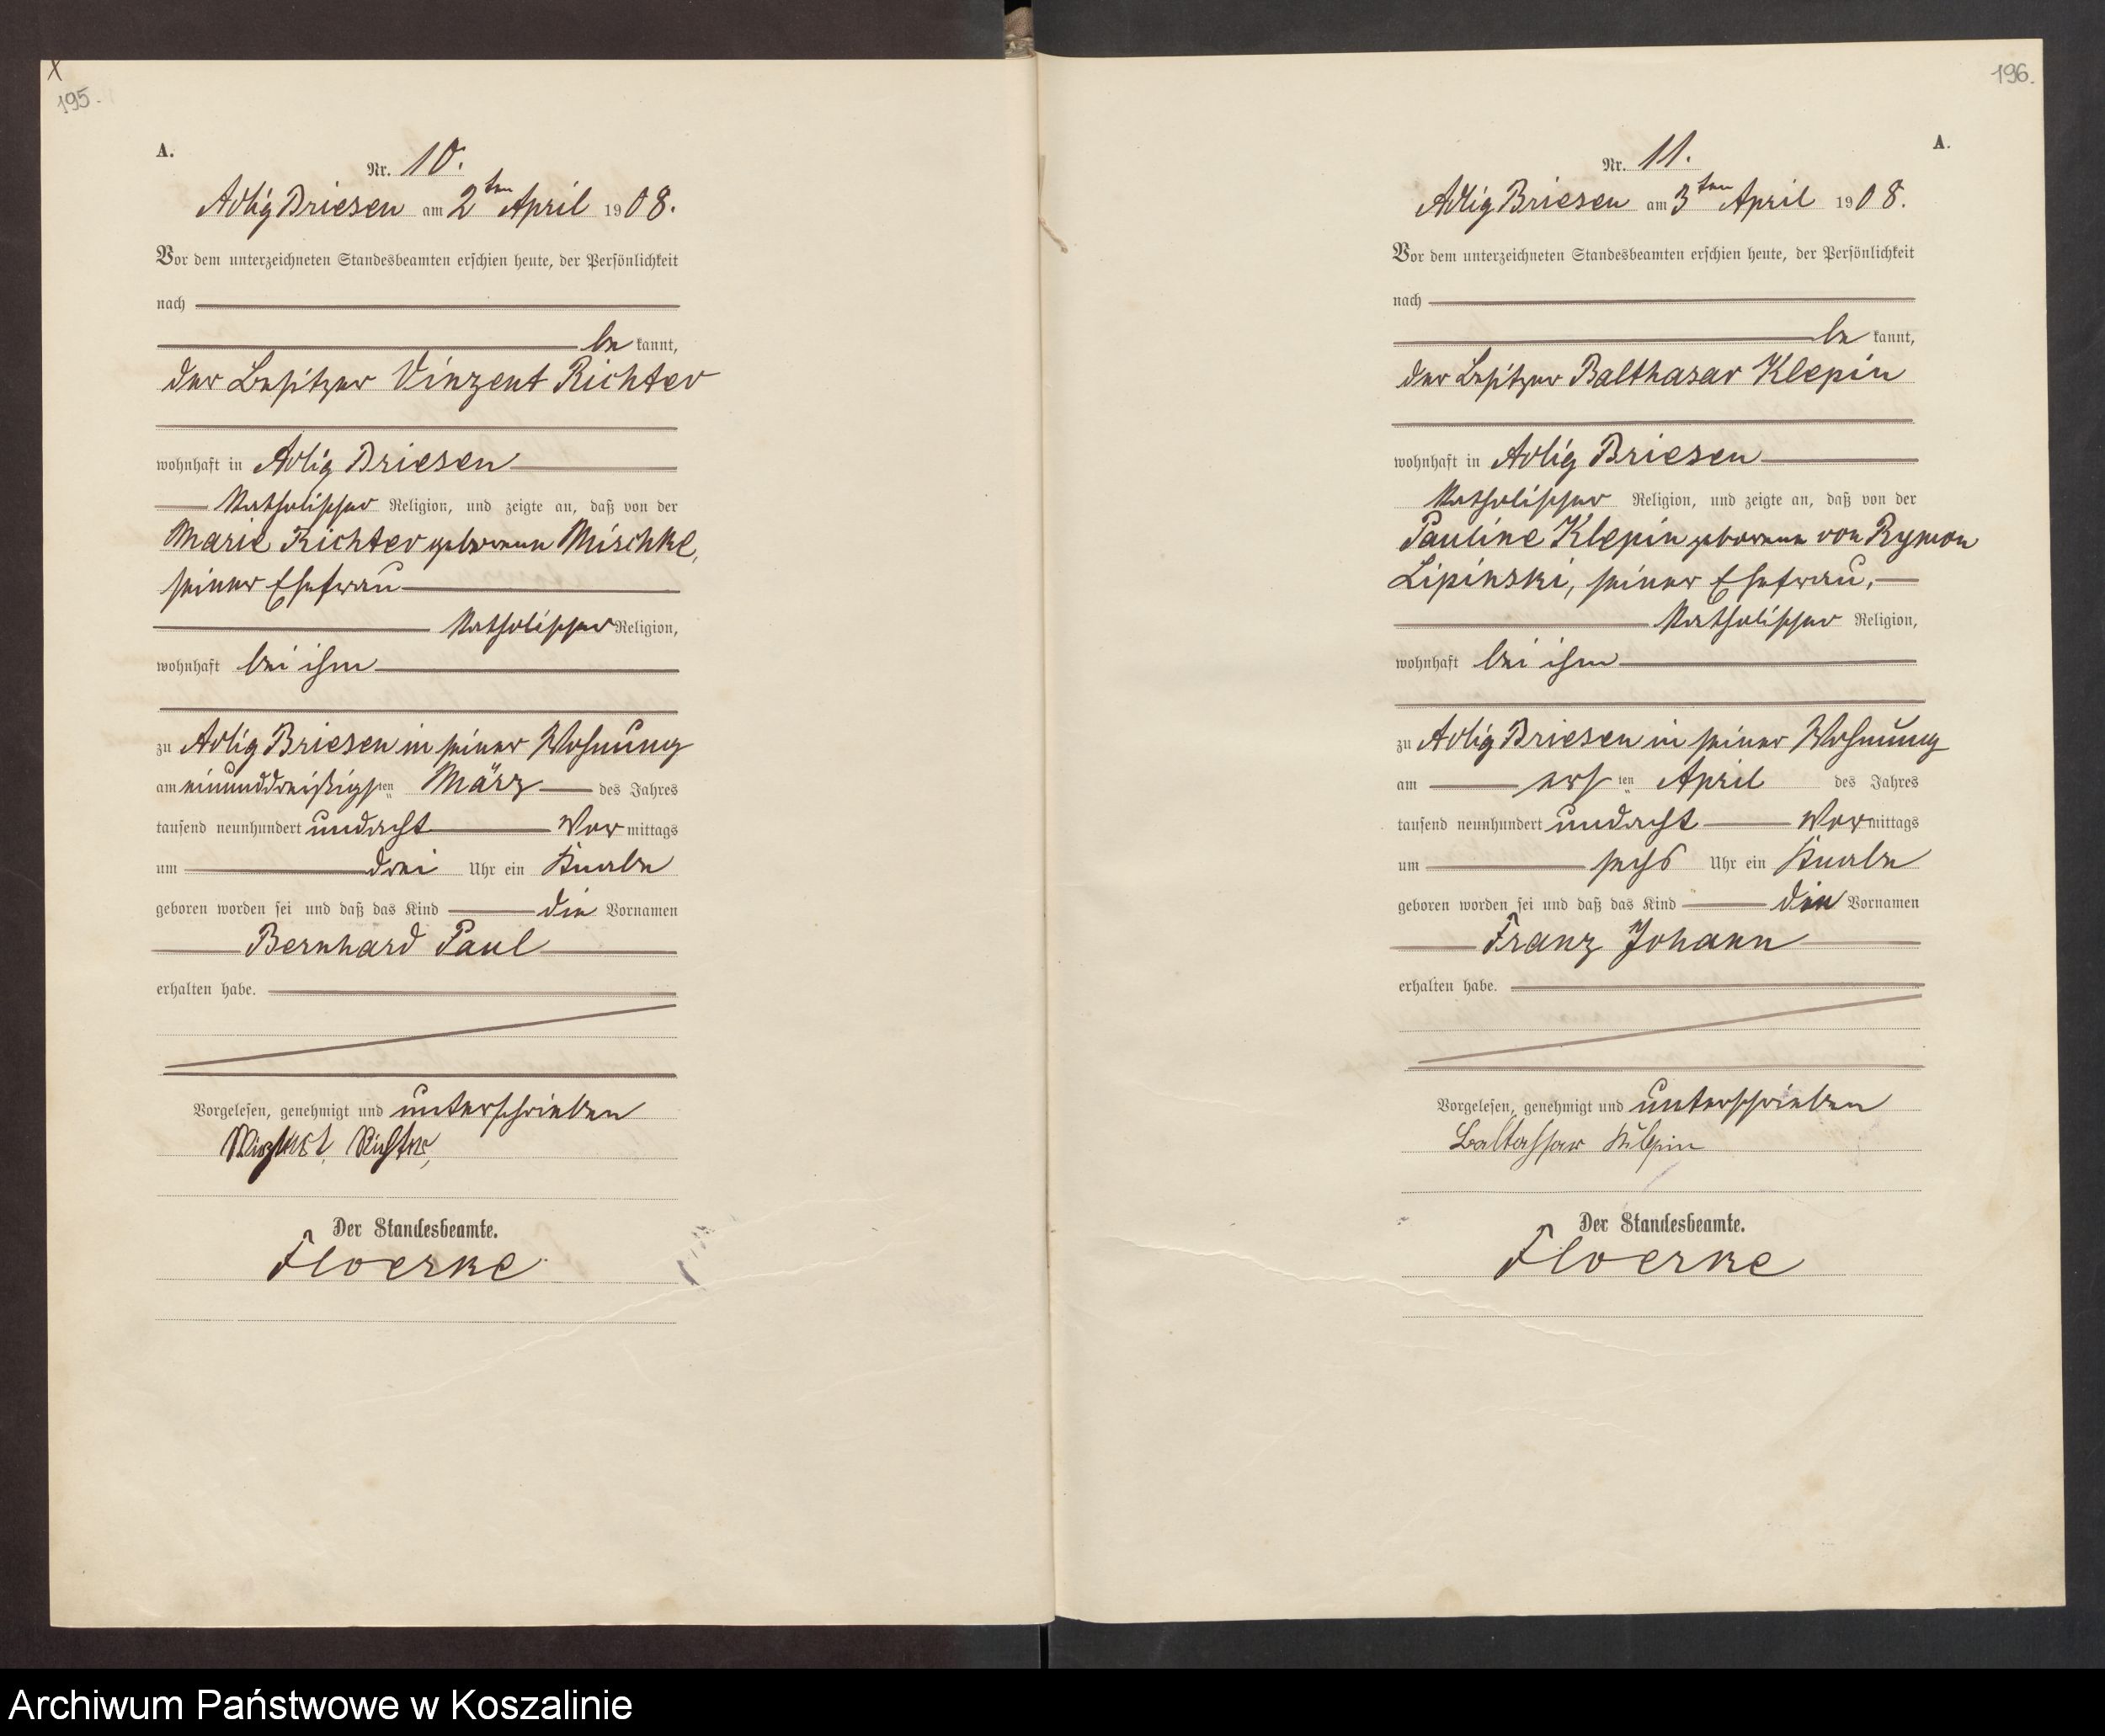 X
195.
A.
Nr. 10.
Adlig Briesen am 2ten April 1908.
Vor dem unterzeichneten Standesbeamten erschien heute, der Persönlichkeit
nach
be kannt,
der Besitzer Vinzent Richter
wohnhaft in Adlig Briesen
katholischer Religion, und zeigte an, daß von der
Marie Richter geborenen Mischke,
seiner Ehefrau
katholischer Religion,
wohnhaft bei ihm
zu Adlig Briesen in seiner Wohnung
am einunddreißigsten März des Jahres
tausend neunhundert undacht Vormittags
um drei Uhr ein Knabe
geboren worden sei und daß das Kind die Vornamen
Bernhard Paul
erhalten habe.
Vorgelesen, genehmigt und unterschrieben
Vinzent Richter
Der Standesbeamte.
Floerke
196.
A.
Nr. 11.
Adlig Briesen am 3ten April 1908.
Vor dem unterzeichneten Standesbeamten erschien heute, der Persönlichkeit
nach
be kannt,
der Besitzer Balthasar Klepin
wohnhaft in Adlig Briesen
katholischer Religion, und zeigte an, daß von der
Pauline Klepin geborenen von Rymon
Lipinski, seiner Ehefrau,
katholischer Religion,
wohnhaft bei ihm
zu Adlig Briesen in seiner Wohnung
am ersten April des Jahres
tausend neunhundert undacht Vormittags
um sechs Uhr ein Knabe
geboren worden sei und daß das Kind die Vornamen
Franz Johann
erhalten habe.
Vorgelesen, genehmigt und unterschrieben
Baltassar Klepin
Der Standesbeamte.
Floerke
Archiwum Państwowe w Koszalinie